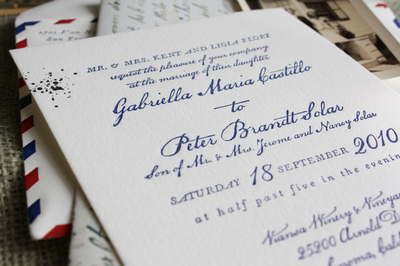 MR. & MRS. KENT AND LIGIA FLORY
request the pleasure of your company
at the marriage of their daughter
Gabriella Maria Castillo
to
Peter Brandt Solar
Son of Mr. & Mrs. Jerome and Nancy Solar
SATURDAY 18 SEPTEMBER 2010
at half past five in the evening
Viansa Winery &
25200 Arnold
Sonoma, California